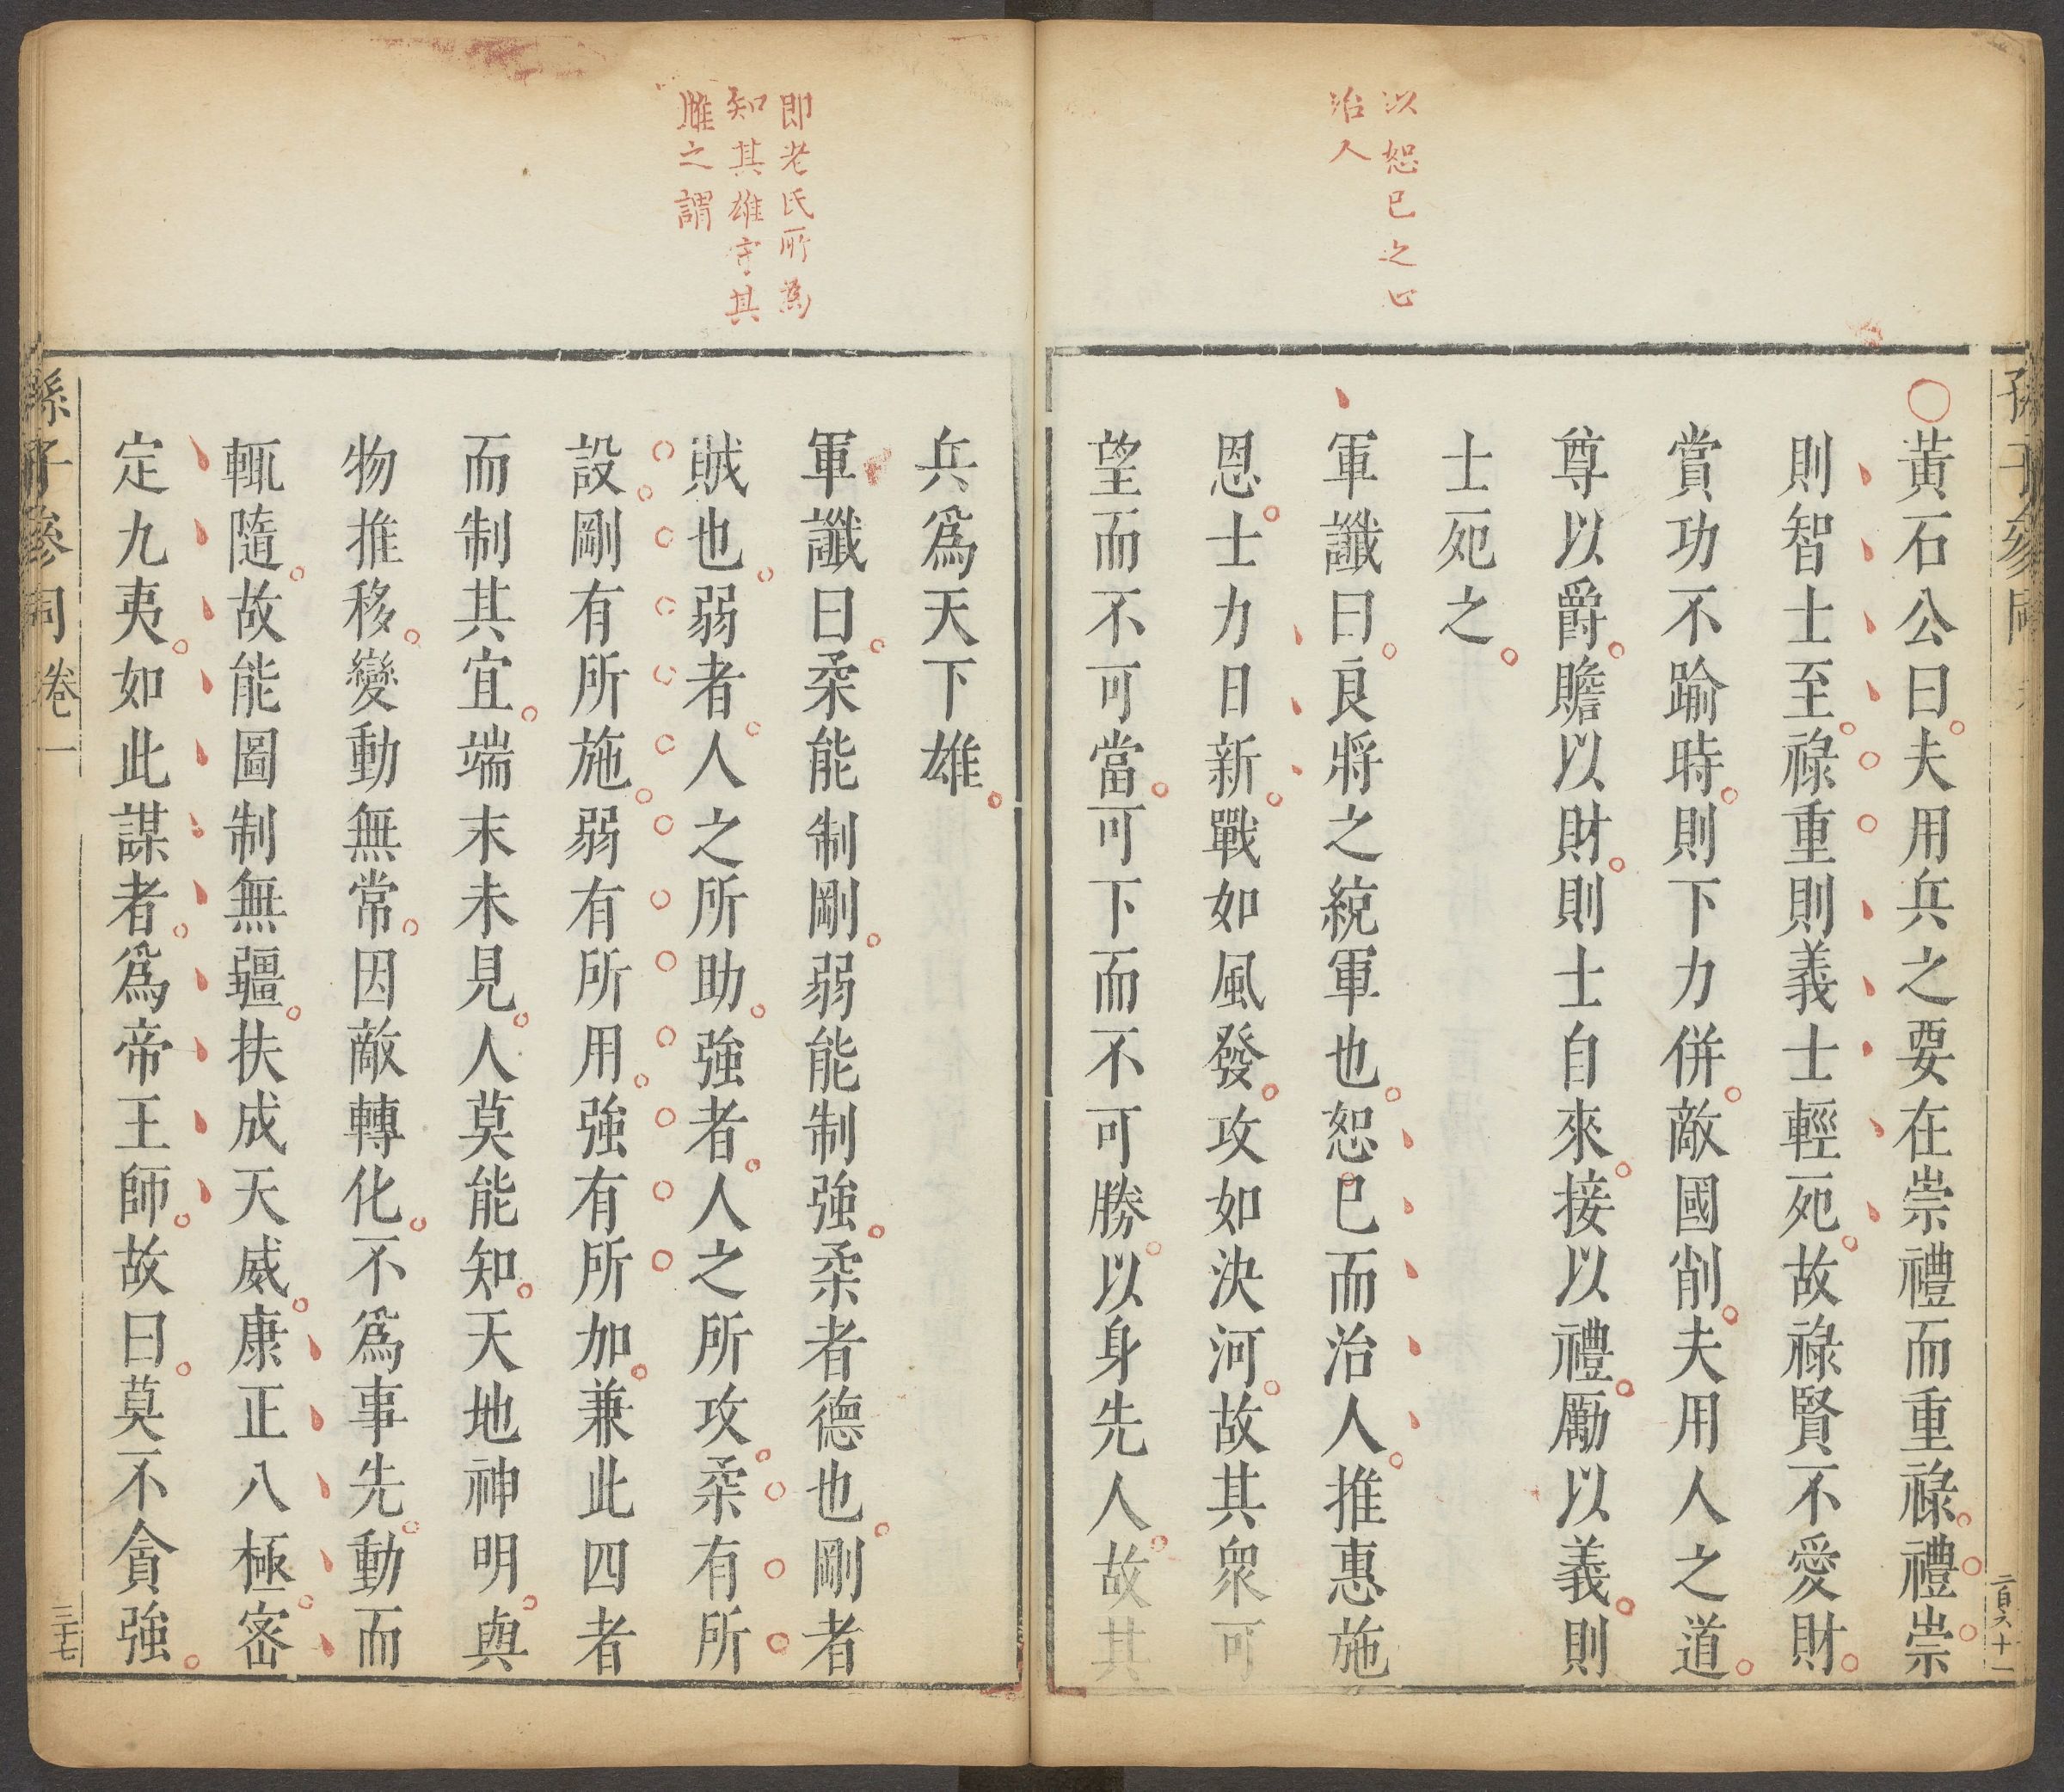 以恕已之心
治人
黃石公曰。夫用兵之要在崇禮而重祿。禮崇
則智士至。祿重則義士輕死。故祿賢不愛財。
賞功不踰時。則下力併。敵國削。夫用人之道。
尊以爵。贍以財。則士自來。接以禮。勵以義。則
士死之。
軍讖曰。良將之統軍也。恕已而治人。推惠施
恩。士力日新。戰如風發。攻如決河。故其眾可
望而不可當。可下而不可勝。以身先人。故其
即老氏所爲
知其雄守其
雌之謂
兵爲天下雄。
軍讖曰。柔能制剛。弱能制強。柔者德也。剛者
賊也。弱者。人之所助。強者。人之所攻。柔有所
設。剛有所施。弱有所用。強有所加。兼此四者
而制其宜。端末未見。人莫能知。天地神明。與
物推移。變動無常。因敵轉化。不爲事先。動而
輒隨。故能圖制無疆。扶成天威。康正八極。密
定九夷。如此謀者。爲帝王師。故曰。莫不貪強。
孫子參同卷一
三十七
二百六十一